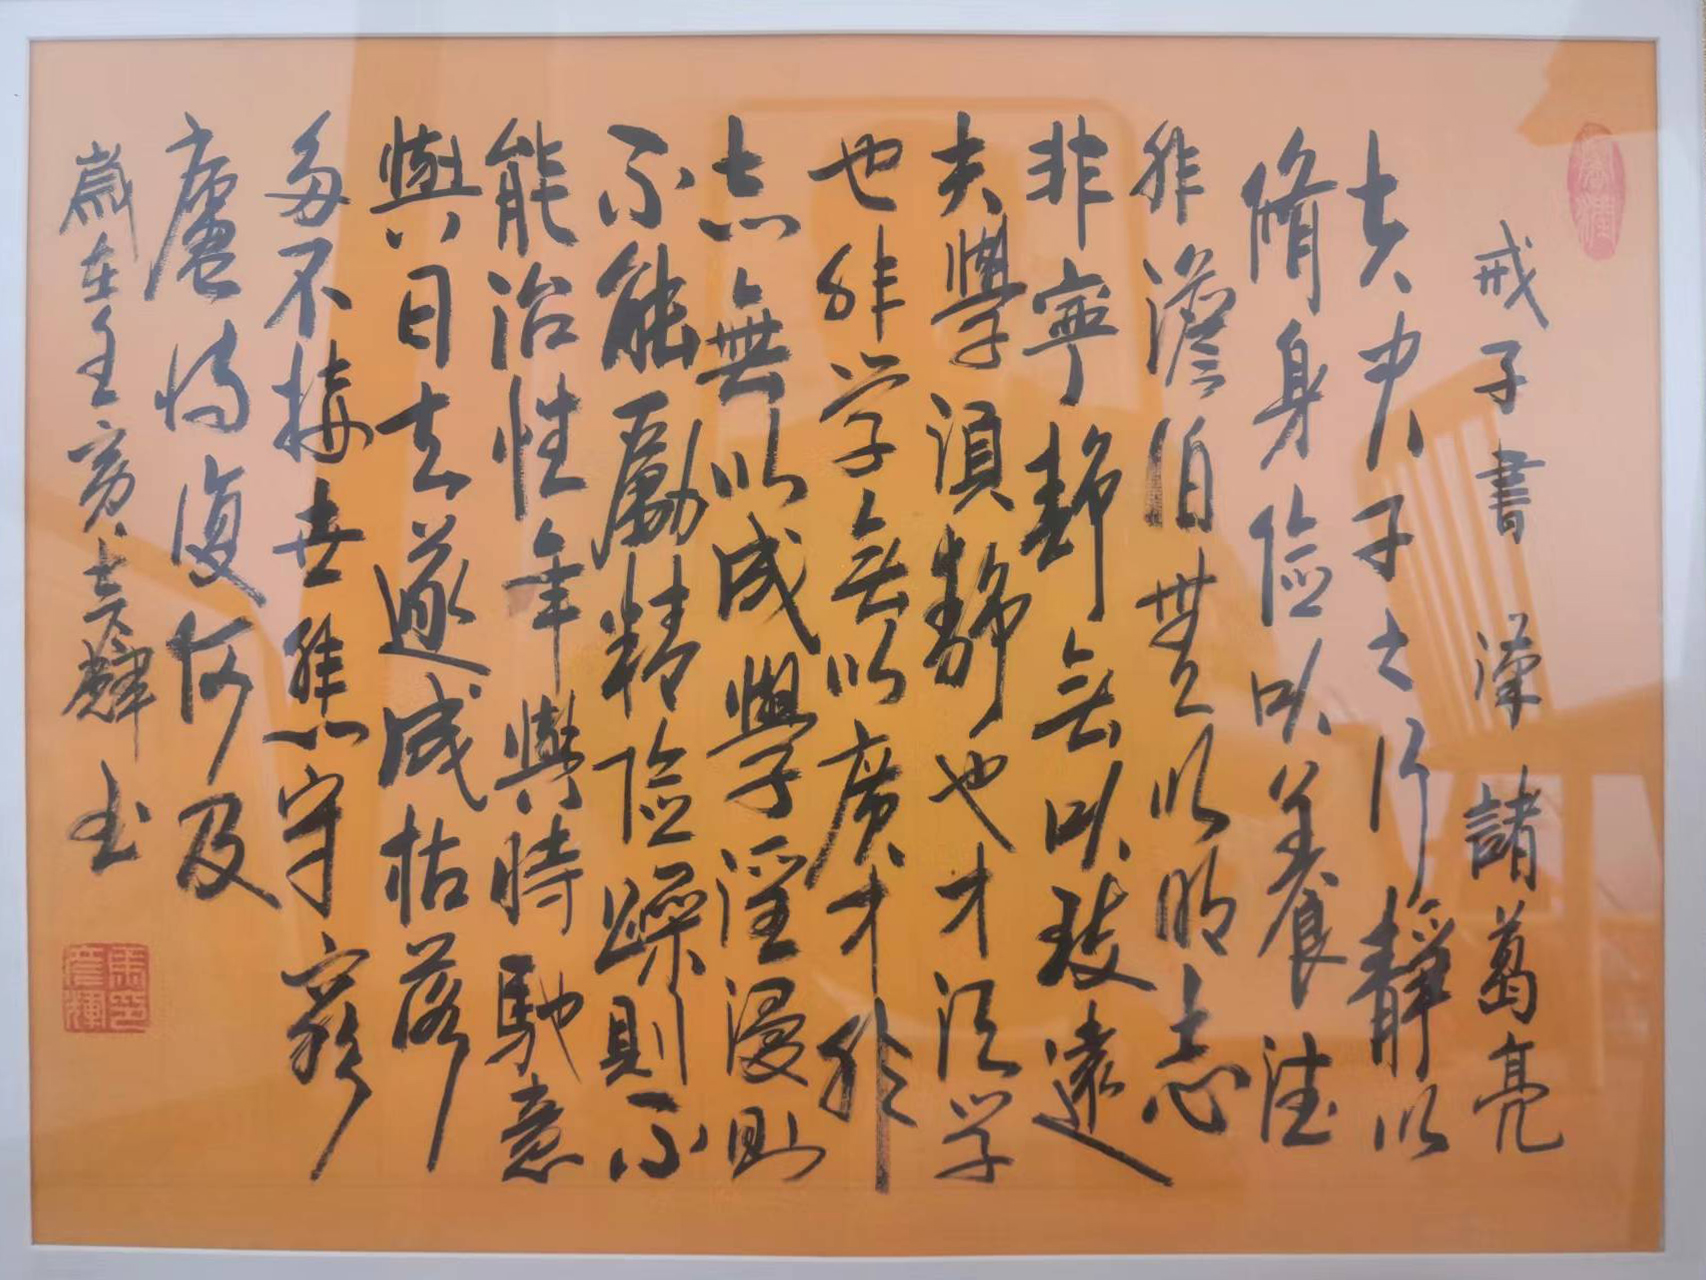 戒子書 漢 諸葛亮
夫君子之行靜以
脩身俭以養德
非澹泊無以明志
非寧靜無以致遠
夫學須靜也才須学
也非学無以廣才非
志無以成學淫漫則
不能勵精险躁則不
能治性年與時馳意
與日去遂成枯落
多不接世悲守窮
廬将復何及
歲在壬寅 輝书